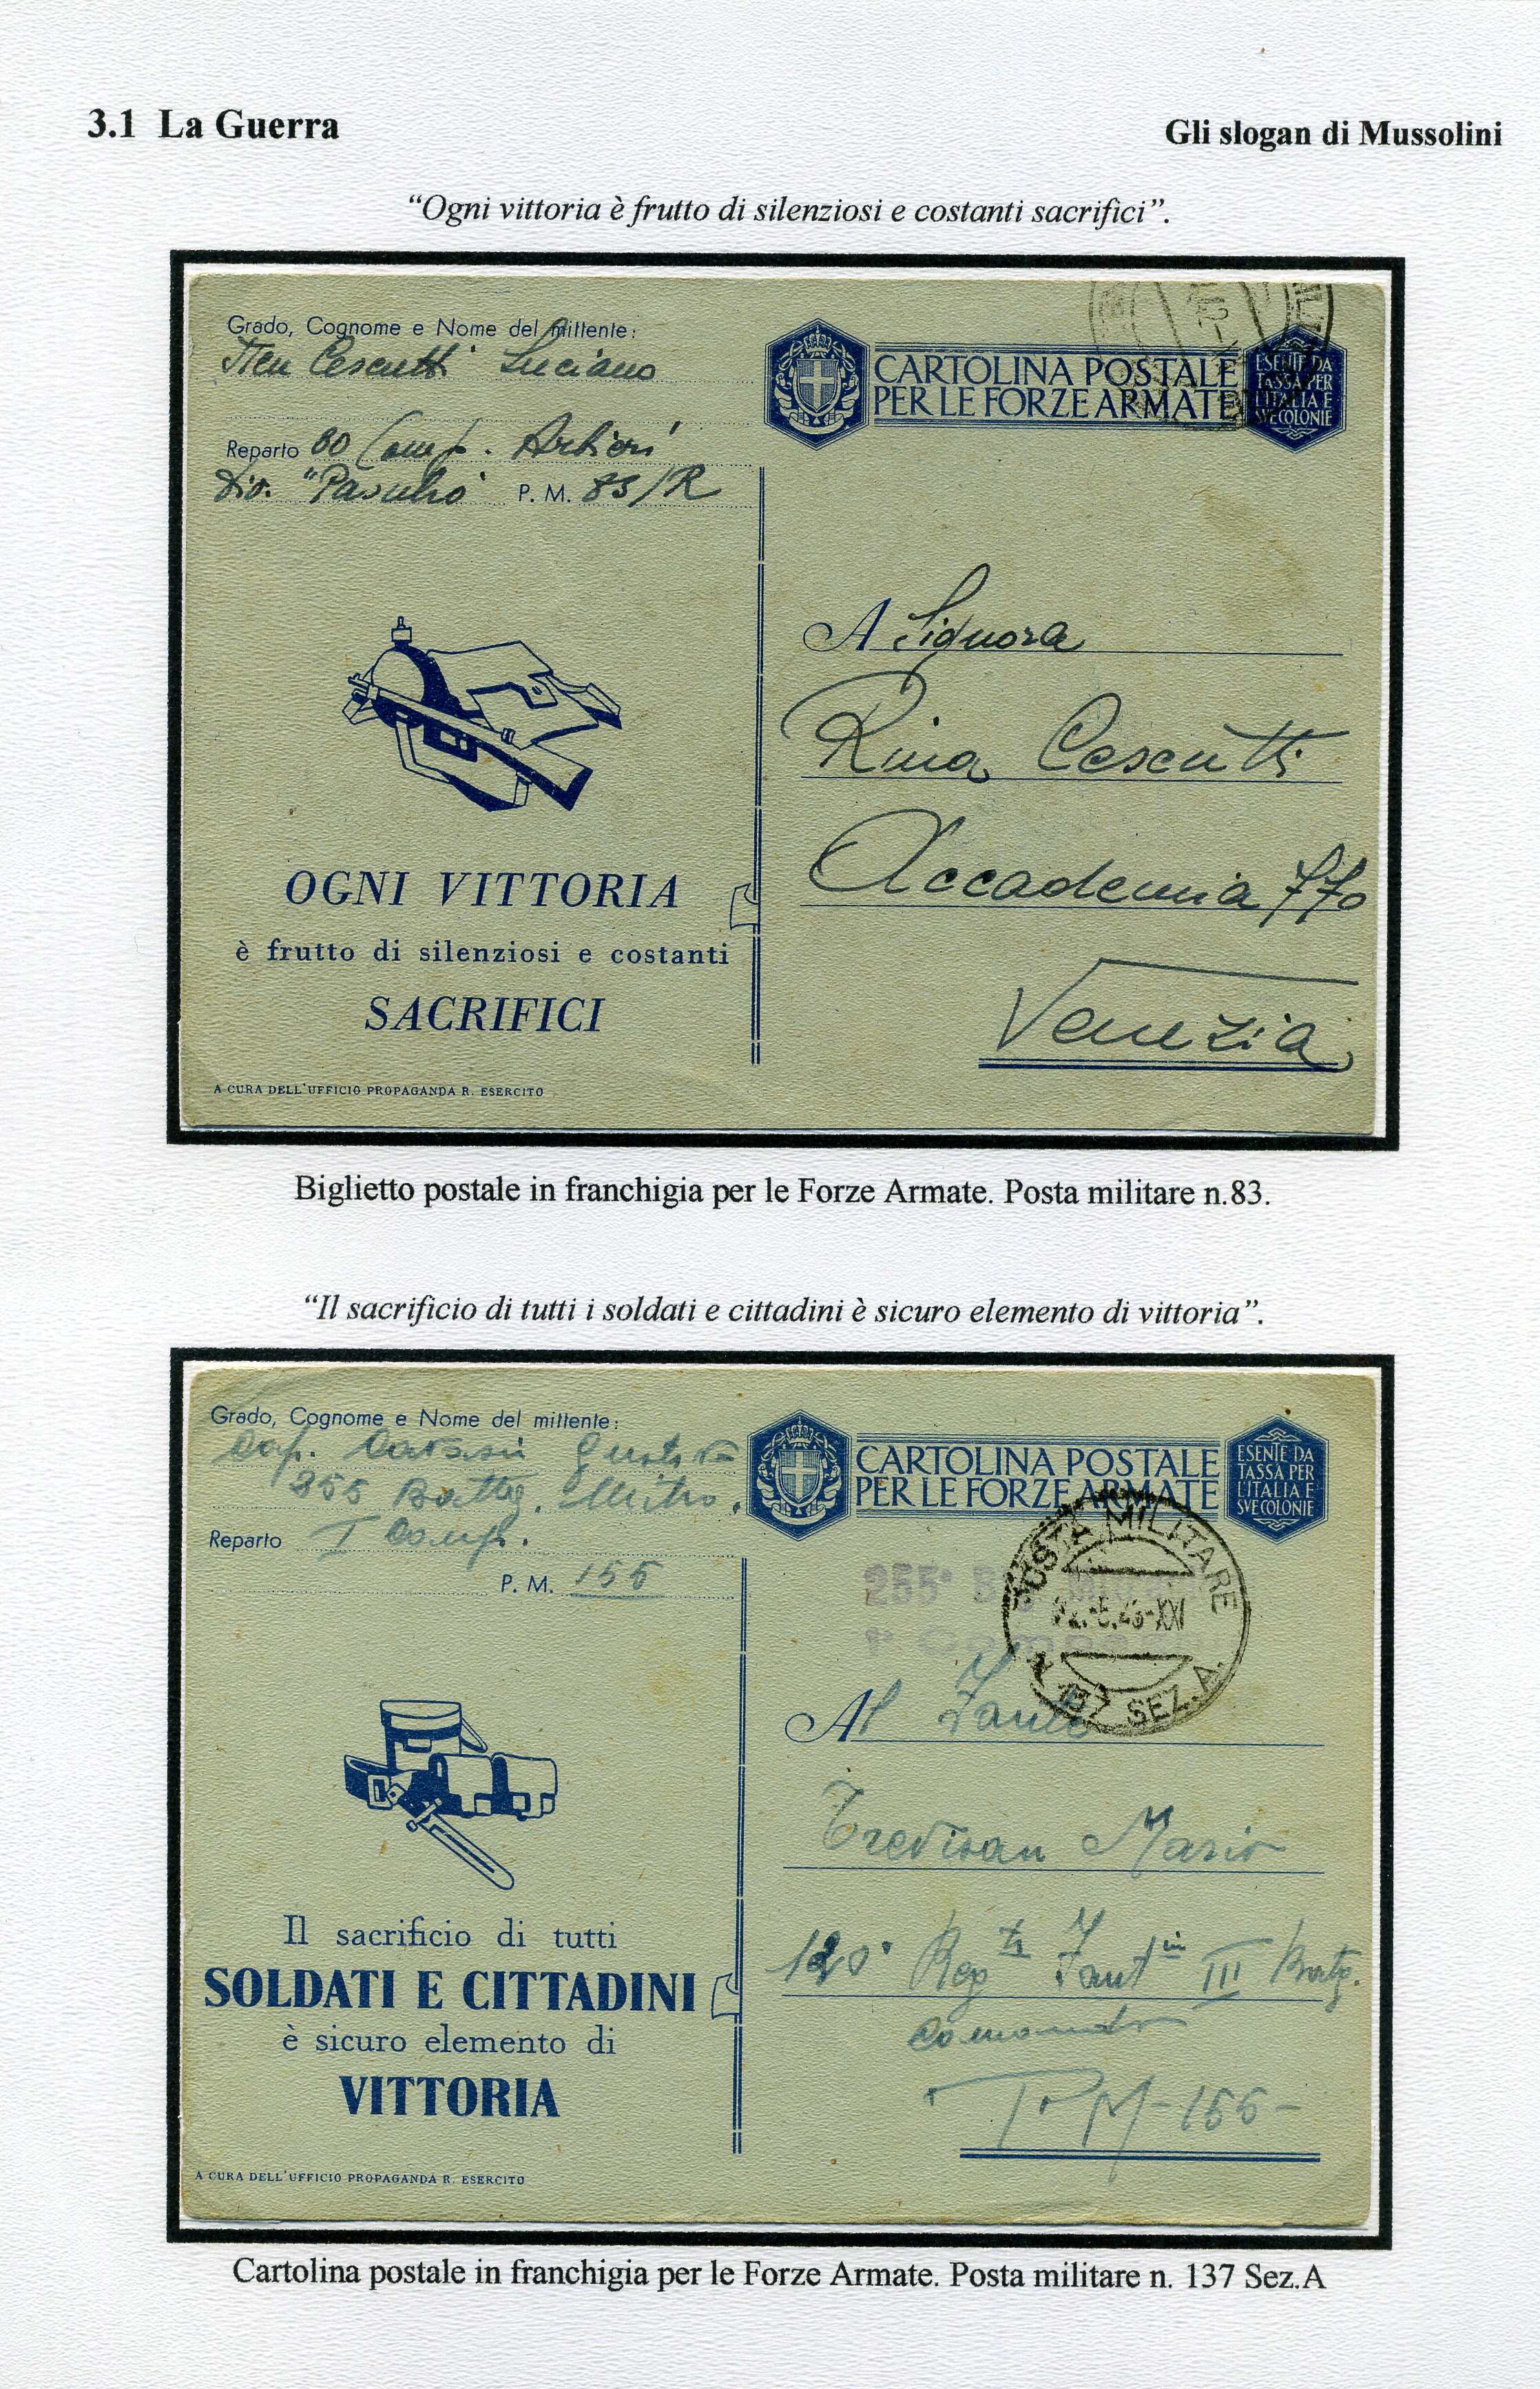 3.1 La Guerra
Gli slogan di Mussolini
“Ogni vittoria è frutto di silenziosi e costanti sacrifici”.
Grado, Cognome e Nome del mittente:
Cescutti Luciano
Reparto 60 Comp. Artieri
Div. "Pasubio" P. M. 83/R
CARTOLINA POSTALE
PER LE FORZE ARMATE
ESENTE DA
TASSA PER
L'ITALIA E
SVE COLONIE
A Signora
Rina Cescutti
Accademia
Venezia
OGNI VITTORIA
è frutto di silenziosi e costanti
SACRIFICI
A CURA DELL'UFFICIO PROPAGANDA R. ESERCITO
Biglietto postale in franchigia per le Forze Armate. Posta militare n.83.
“Il sacrificio di tutti i soldati e cittadini è sicuro elemento di vittoria”.
Grado, Cognome e Nome del mittente:
Cap.
355 Battag. Mitr.
Reparto I Comp.
P. M. 155
CARTOLINA POSTALE
PER LE FORZE ARMATE
ESENTE DA
TASSA PER
L'ITALIA E
SVE COLONIE
255°
POSTA MILITARE
N. 137 SEZ. A.
Al Fante
Trevisan Mario
120° Regt Fant III Batg.
Comando
P. M - 155 -
Il sacrificio di tutti
SOLDATI E CITTADINI
è sicuro elemento di
VITTORIA
A CURA DELL'UFFICIO PROPAGANDA R. ESERCITO
Cartolina postale in franchigia per le Forze Armate. Posta militare n. 137 Sez.A